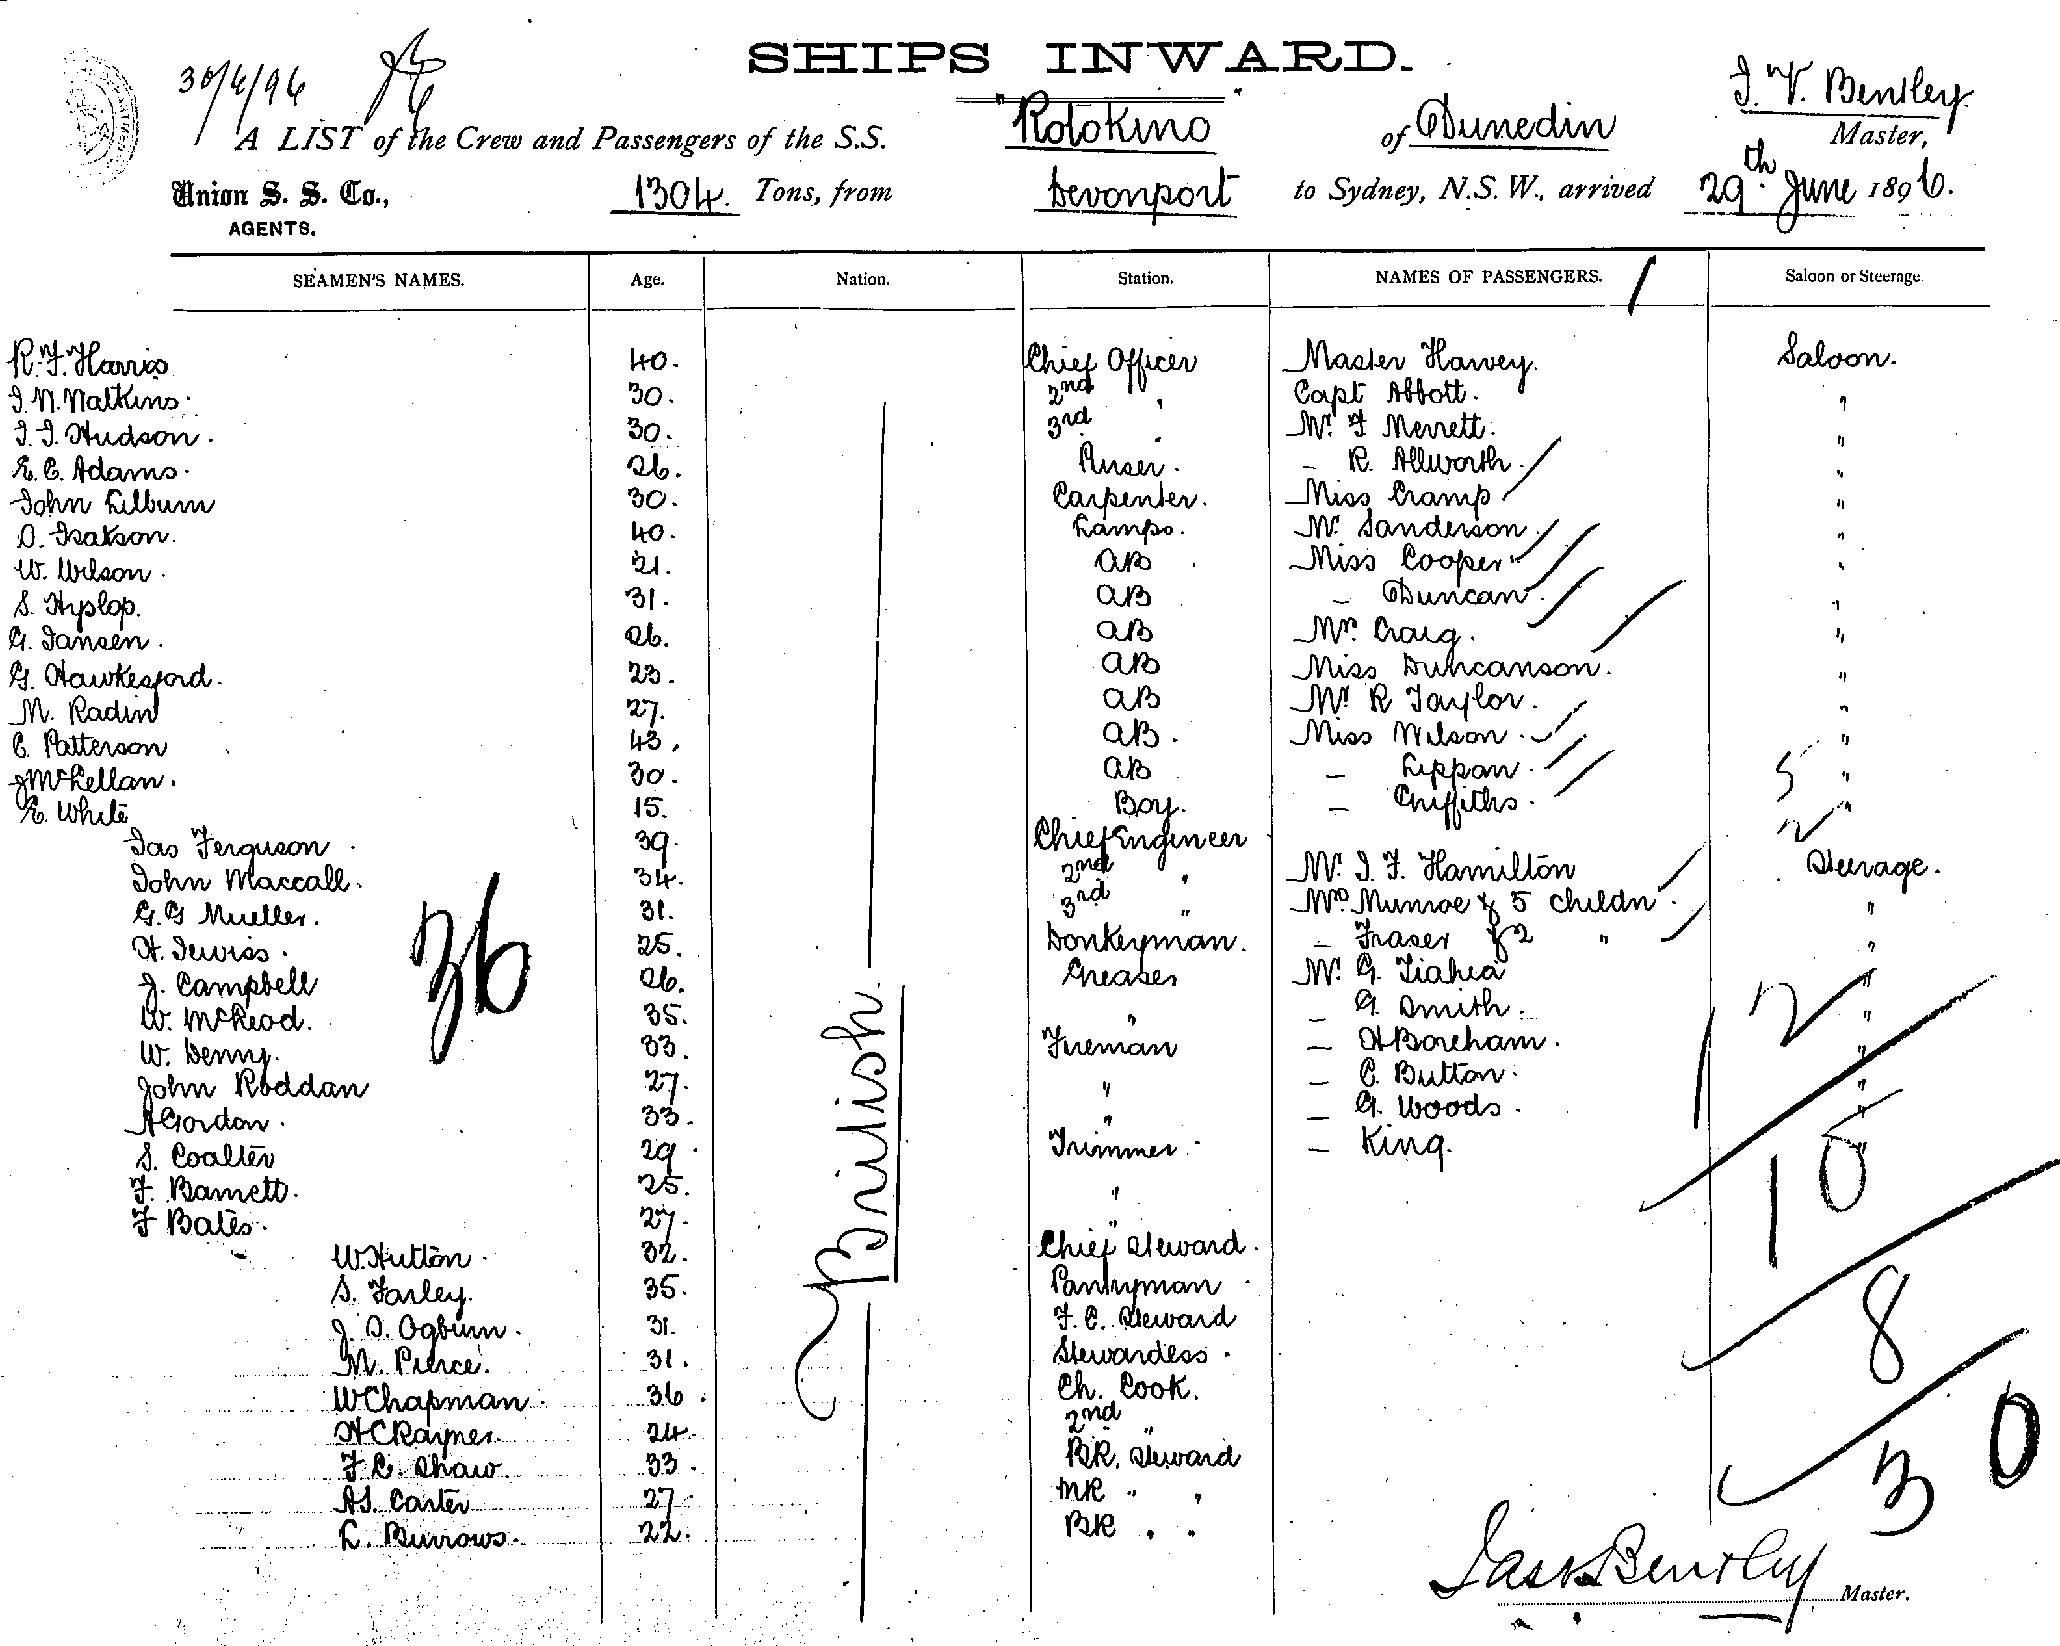 SHIPS INWARD.
30/6/96
J. V. Bentley
A LIST of the Crew and Passengers of the S.S. "Rotokino" of Dunedin Master,
Union S. S. Co., 1304. Tons, from Devonport to Sydney, N.S.W., arrived 29th June 1896.
AGENTS.
SEAMEN'S NAMES. Age. Nation. Station. NAMES OF PASSENGERS. Saloon or Steerage
R. F. Harris 40. Chief Officer Master Harvey. Saloon.
J. N. Watkins. 30. 2nd " Capt Abbott. "
J. J. Hudson. 30. 3rd " Mr. F Merrett. "
E. C. Adams. 26. Purser. – R. Allworth. "
John Lilburn 30. Carpenter. Miss Cramp "
O. Isakson. 40. Lamps. Mr. Sanderson "
W. Wilson. 21. AB Miss Cooper "
S. Hyslop. 31. AB – Duncan "
G. Jansen. 26. AB Mr. Craig. "
G. Hawkesford. 23. AB Miss Duncanson. "
M. Radin 27. AB Mr R Taylor. "
C. Patterson 43. AB. Miss Wilson. "
J McLellan. 30. AB – Lippan. "
E. White 15. Boy. – Griffiths. "
Jas Ferguson 39. Chief Engineer
John Maccall. 34. 2nd " Mr. J. F. Hamilton Steerage.
G. G Mueller. 31. 3rd " Mrs. Munroe & 5 childn. "
H. Jewiss. 25. Donkeyman. – Fraser & 2 " "
J. Campbell 26. Greaser Mr. G. "
W. McLeod. 35. " – G. Smith. "
W. Denny. 33. Fireman – H Boreham. "
John Roddan 27. " – C. Button. "
A Gordon. 33. " – G. Woods. "
S. Coalter 29. Trimmer. – King. "
F. Barnett. 25. "
F Bates. 27. "
W. Hutton. 32. Chief Steward.
S. Farley. 35. Pantryman
J. O. Ogburn. 31. F. C. Steward
M. Pierce. 31. Stewardess.
W Chapman. 36. Ch. Cook.
H C Rayner. 24. 2nd "
F. C. Shaw 33. BR. Steward
A S. Carter 27. MR " "
L. Burrows. 22. BR " "
British
36
5
2
12
10
8
30
Jas V Bentley Master.